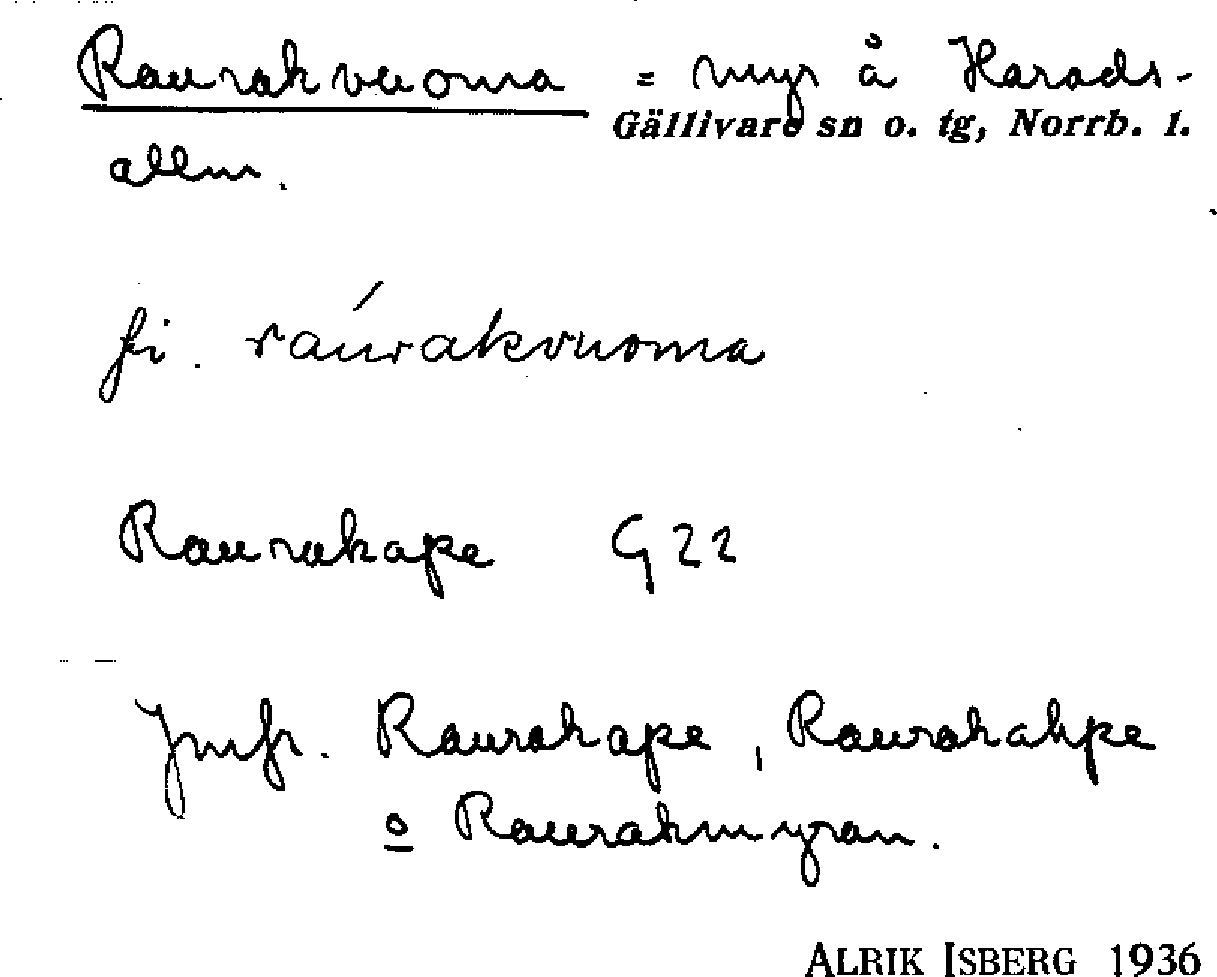 Raurakvuoma = myr å Harads-
Gällivare sn o. tg, Norrb. l.
allm.
fi. raúrakvuoma
Raurakape G22
Jmfr. Raurakape, Raurakahpe
o Raurakmyran.
ALRIK ISBERG 1936